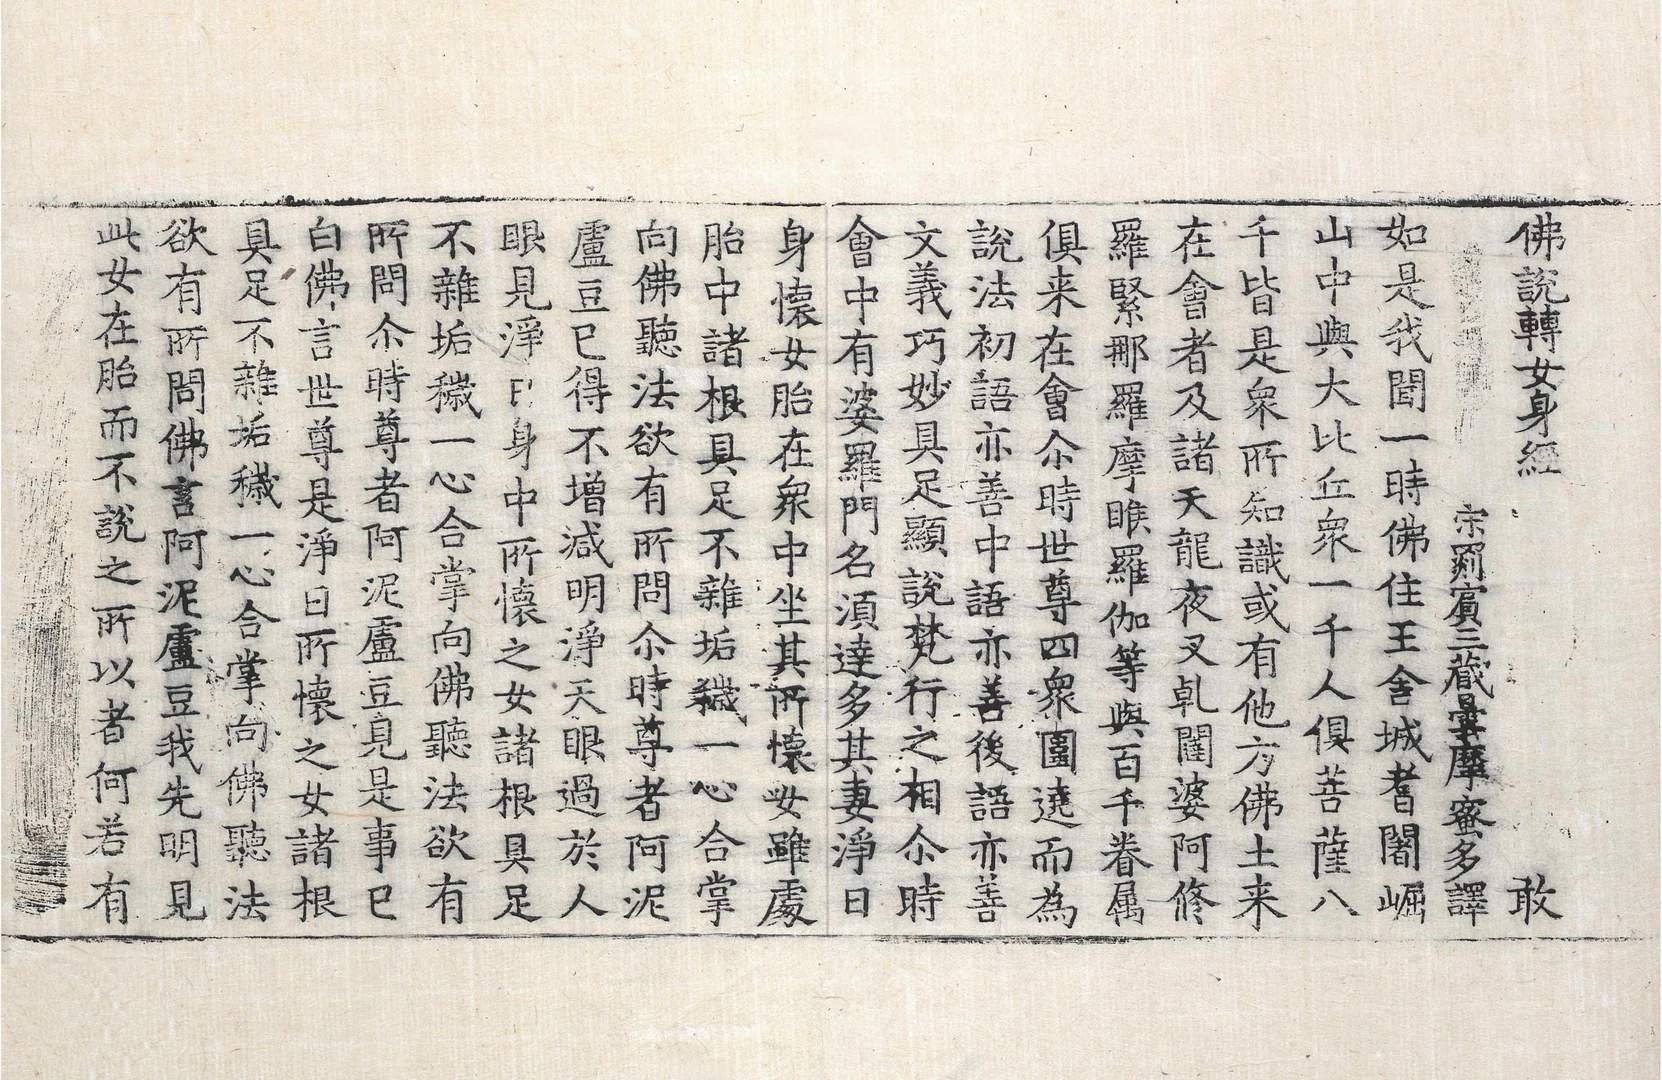 佛說轉女身經　敢
宋罽賔三藏曇摩蜜多譯
如是我聞一時佛住王舎城耆闍崛
山中與大比丘衆一千人俱菩薩八
千皆是衆所知識或有他方佛土来
在會者及諸天龍夜叉乹闥婆阿修
羅緊那羅羅摩睺羅伽等與百千眷属
俱来在會尒時世尊四衆圍遶而為
說法初語亦善中語亦善後語亦善
文義巧妙具足顯說梵行之相尒時
會中有婆羅門名湏達多其妻淨日
身懷女胎在衆中坐其所懷女雖處
胎中諸根具足不雜垢穢一心合掌
向佛聽法欲有所問尒時尊者阿泥
盧豆已得不增減明淨天眼過於人
眼見淨日身中所懷之女諸根具足
不雜垢穢一心合掌向佛聽法欲有
所問尒時尊者阿泥盧豆見是事已
白佛言世尊是淨日所懷之女諸根
具足不雜垢穢一心合掌向佛聽法
欲有所問佛言阿泥盧豆我先明見
此女在胎而不說之所以者何若有